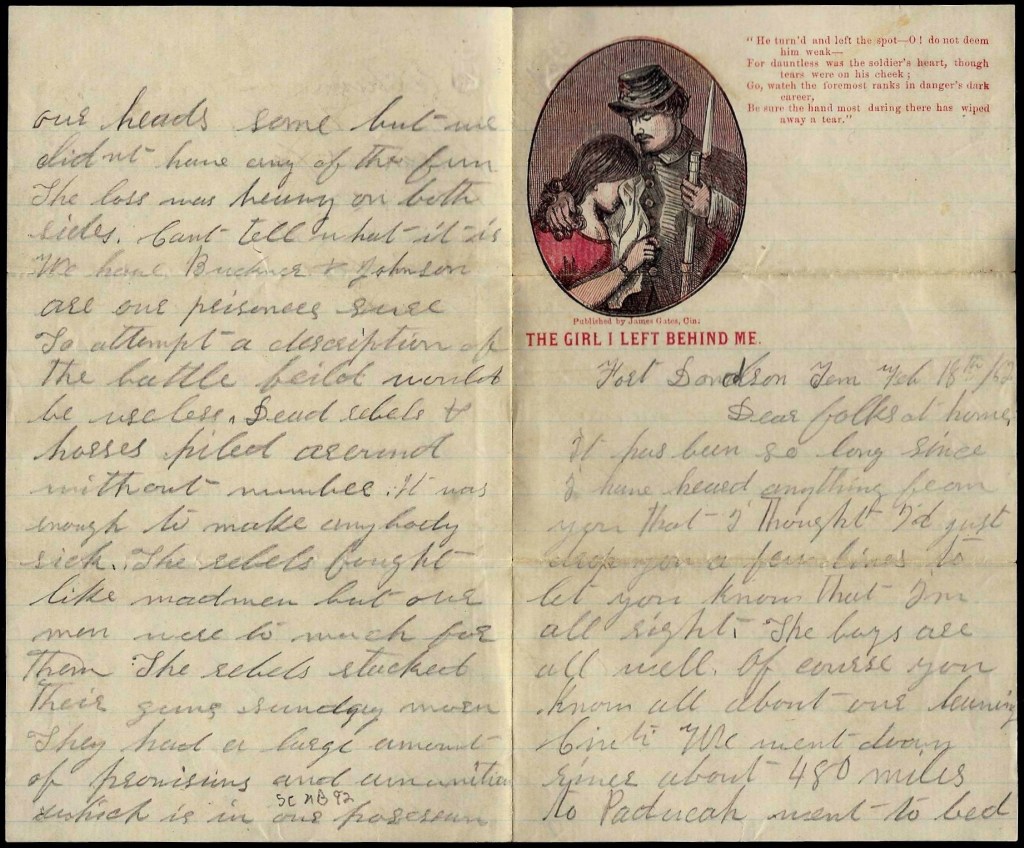 our heads some but we
didnt have any of the fun
The loss was heavy on both
sides. Cant tell what it is
We have Buckner & Johnson
are our prisoners sure
To attempt a description of
the battle feild would
be useless. Dead rebels &
horses piled around
without number. It was
enough to make anybody
sick. The rebels fought
like madmen but our
men were to much for
them The rebels stacked
their guns sunday morn
They had a large amount
of provisions and amunition
which is in our possesion
SC NB 92
"He turn'd and left the spot—O! do not deem
him weak—
For dauntless was the soldier's heart, though
tears were on his cheek;
Go, watch the foremost ranks in danger's dark
career,
Be sure the hand most daring there has wiped
away a tear."
Published by James Gates, Cin.
THE GIRL I LEFT BEHIND ME.
Fort Donelson Tenn Feb 18th /62
Dear folks at home,
It has been so long since
I have heard anything from
you that I thought I'd just
drop you a few lines to
let you know that I'm
all right. The boys are
all well. Of course you
know all about our leaving
Cinti We went down
river about 480 miles
to Paducah went to bed